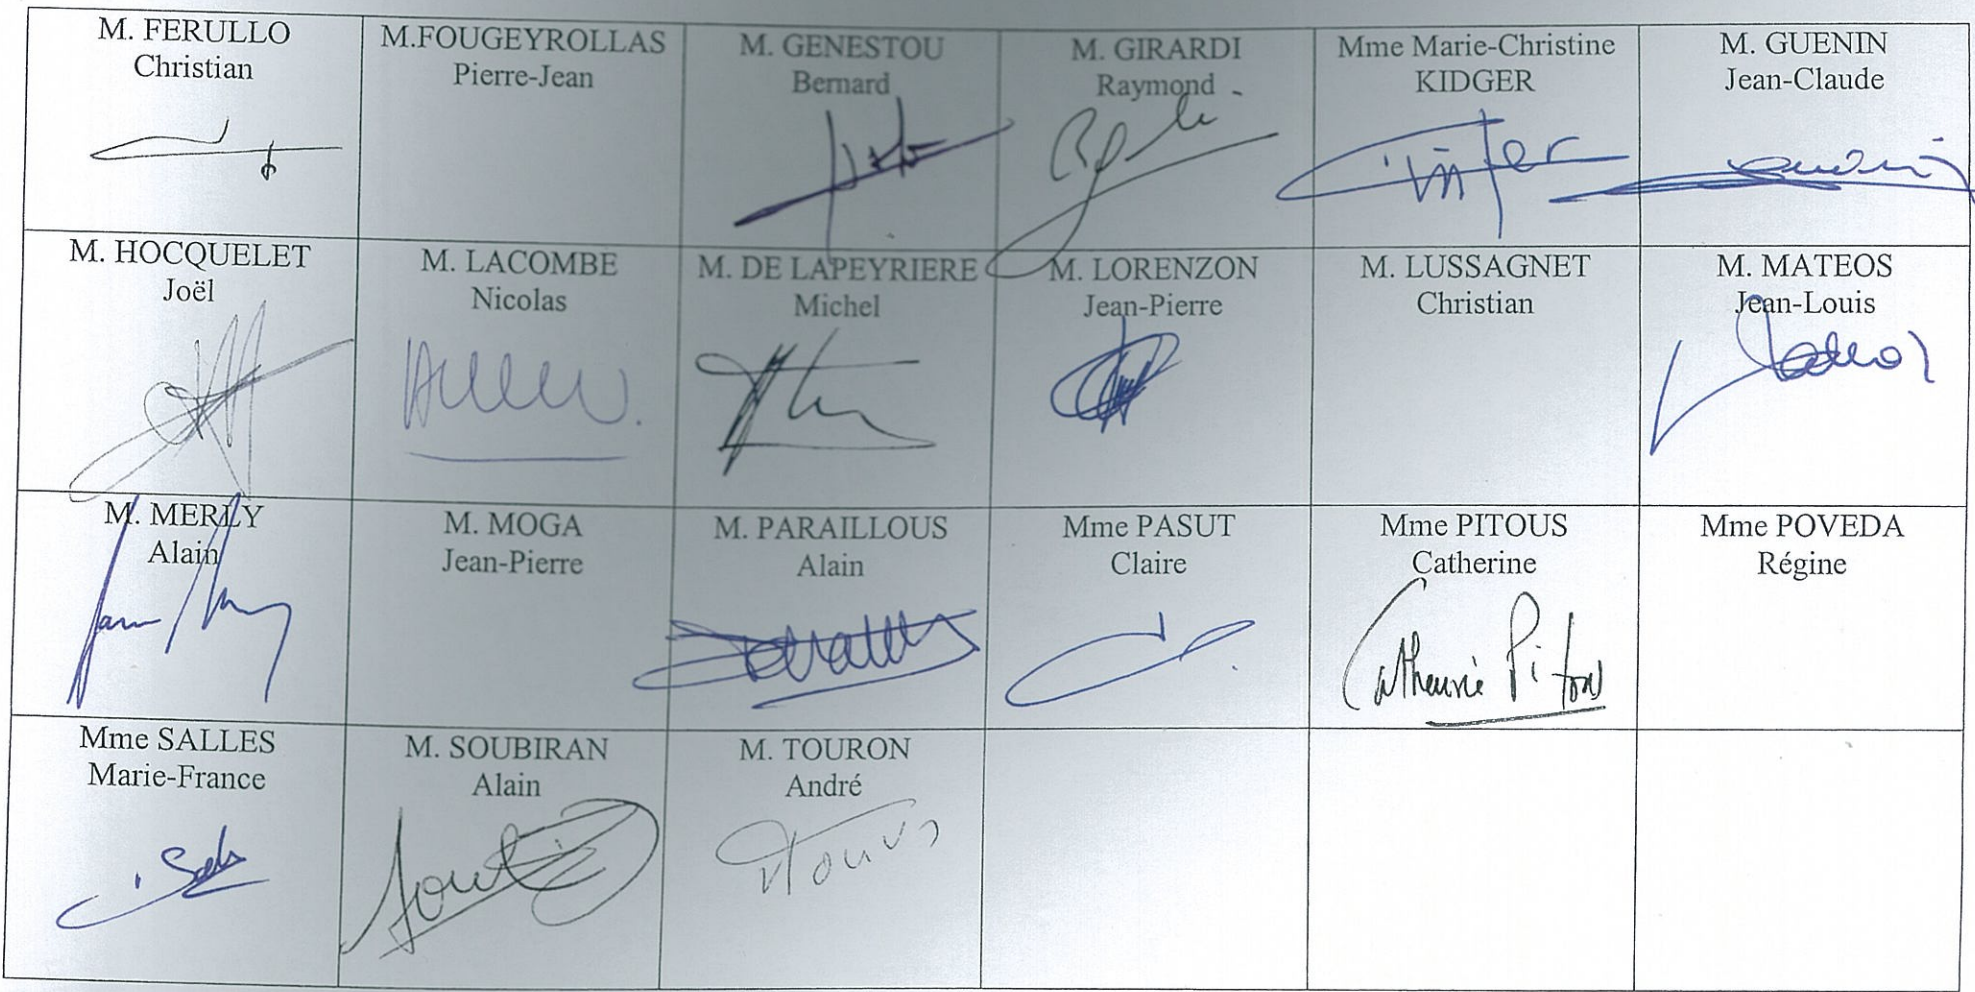 M. FERULLO
Christian
M.FOUGEYROLLAS
Pierre-Jean
M. GENESTOU
Bernard
M. GIRARDI
Raymond
Mme Marie-Christine
KIDGER
M. GUENIN
Jean-Claude
M. HOCQUELET
Joël
M. LACOMBE
Nicolas
M. DE LAPEYRIERE
Michel
M. LORENZON
Jean-Pierre
M. LUSSAGNET
Christian
M. MATEOS
Jean-Louis
M. MERLY
Alain
M. MOGA
Jean-Pierre
M. PARAILLOUS
Alain
Mme PASUT
Claire
Mme PITOUS
Catherine
Catherine Pitous
Mme POVEDA
Régine
Mme SALLES
Marie-France
M. SOUBIRAN
Alain
M. TOURON
André